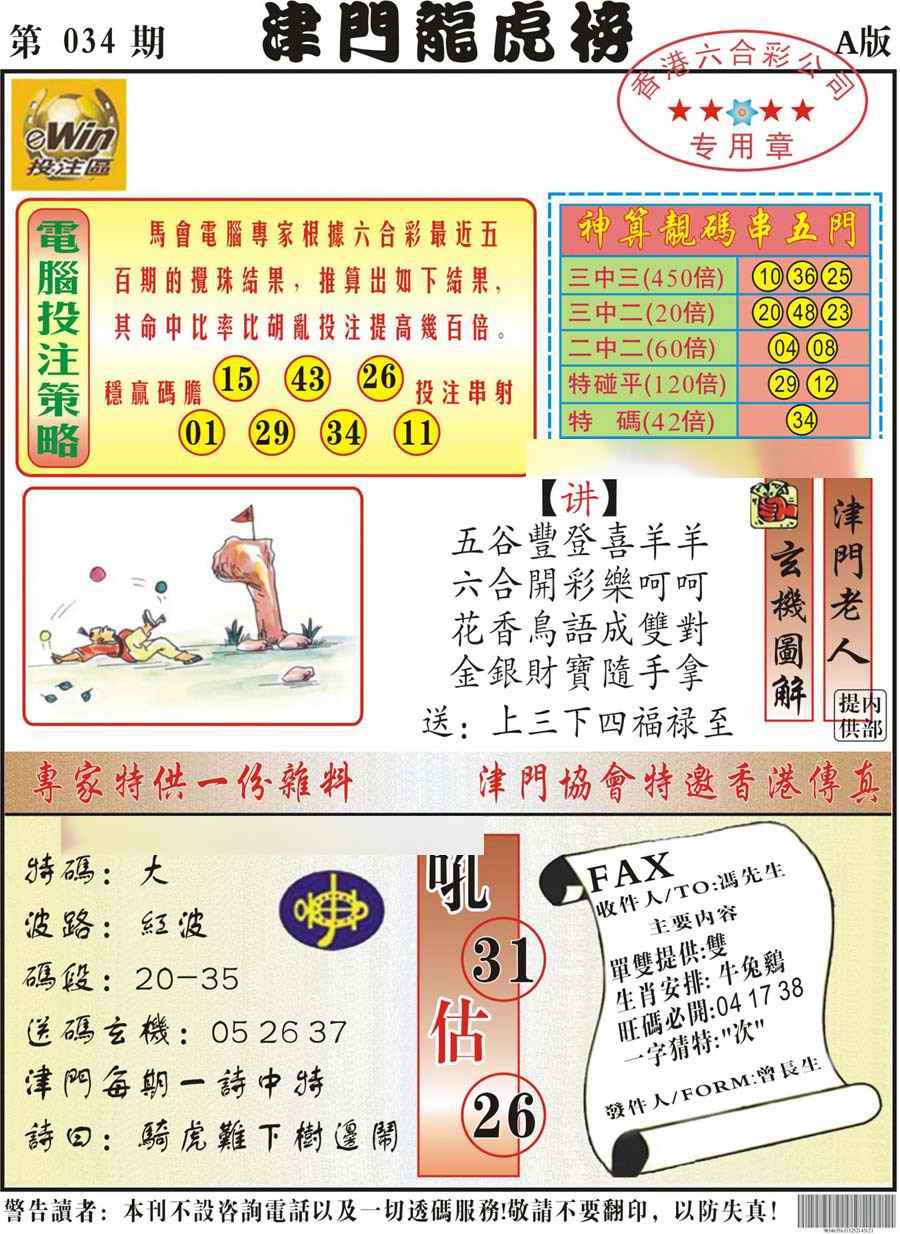 第 034 期
津門龍虎榜
A版
香港六合彩公司
专用章
eWin
投注區
電腦投注策略
馬會電腦專家根據六合彩最近五
百期的攪珠結果，推算出如下結果，
其命中比率比胡亂投注提高幾百倍。
穩贏碼膽 15 43 26 投注串射
01 29 34 11
神算靚碼串五門
三中三(450倍) 10 36 25
三中二(20倍) 20 48 23
二中二(60倍) 04 08
特碰平(120倍) 29 12
特 碼(42倍) 34
【讲】
五谷豐登喜羊羊
六合開彩樂呵呵
花香鳥語成雙對
金銀財寶隨手拿
送：上三下四福禄至
玄機圖解
津門老人
内部提供
專家特供一份雜料
津門協會特邀香港傳真
特碼：大
波路：紅波
碼段：20-35
送碼玄機：05 26 37
津門每期一詩中特
詩曰：騎虎難下樹邊鬧
吼
31
估
26
FAX
收件人/TO:馮先生
主要内容
單雙提供:雙
生肖安排:牛兔鷄
旺碼必開:04 17 38
一字猜特:"次"
發件人/FORM:曾長生
警告讀者：本刊不設咨詢電話以及一切透碼服務!敬請不要翻印，以防失真！